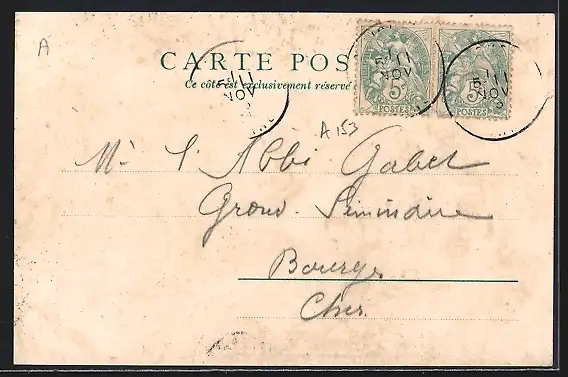 A
CARTE POS
Ce côté est exclusivement réservé
5c 5c
POSTES POSTES
11 NOV
11 NOV
11 NOV
A 153
Mr l'Abbé Gabet
Grand Séminaire
Bourges
Cher